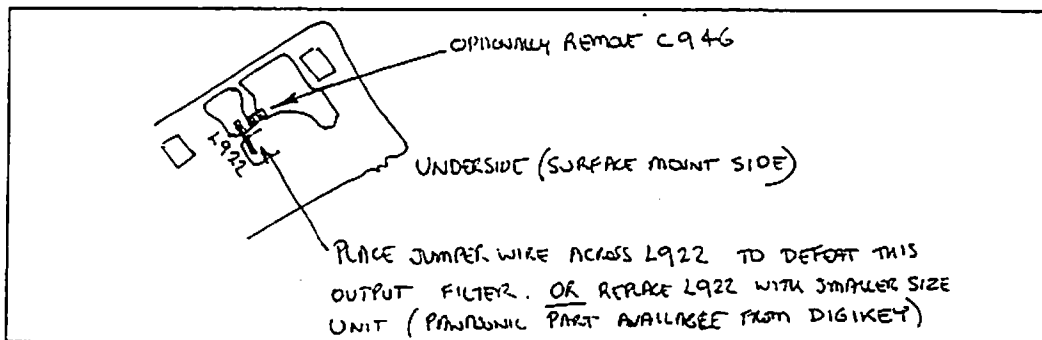 OPTIONALLY REMOVE C946
L922
UNDERSIDE (SURFACE MOUNT SIDE)
PLACE JUMPER WIRE ACROSS L922 TO DEFEAT THIS
OUTPUT FILTER. OR REPLACE L922 WITH SMALLER SIZE
UNIT (PANASONIC PART AVAILABLE FROM DIGIKEY)